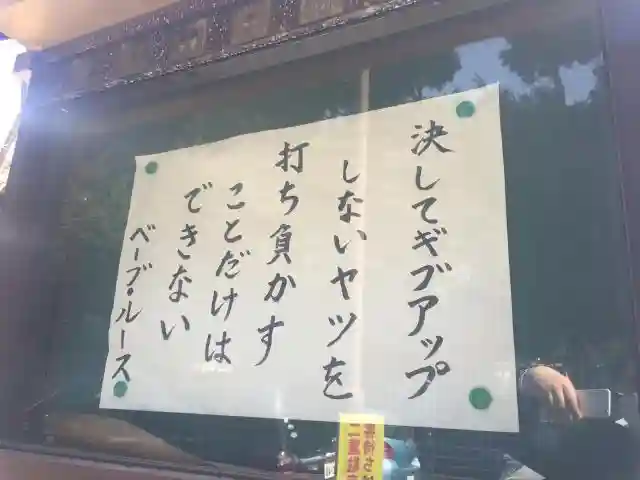 決してギブアップ
しないヤツを
打ち負かす
ことだけは
できない
ベーブ・ルース